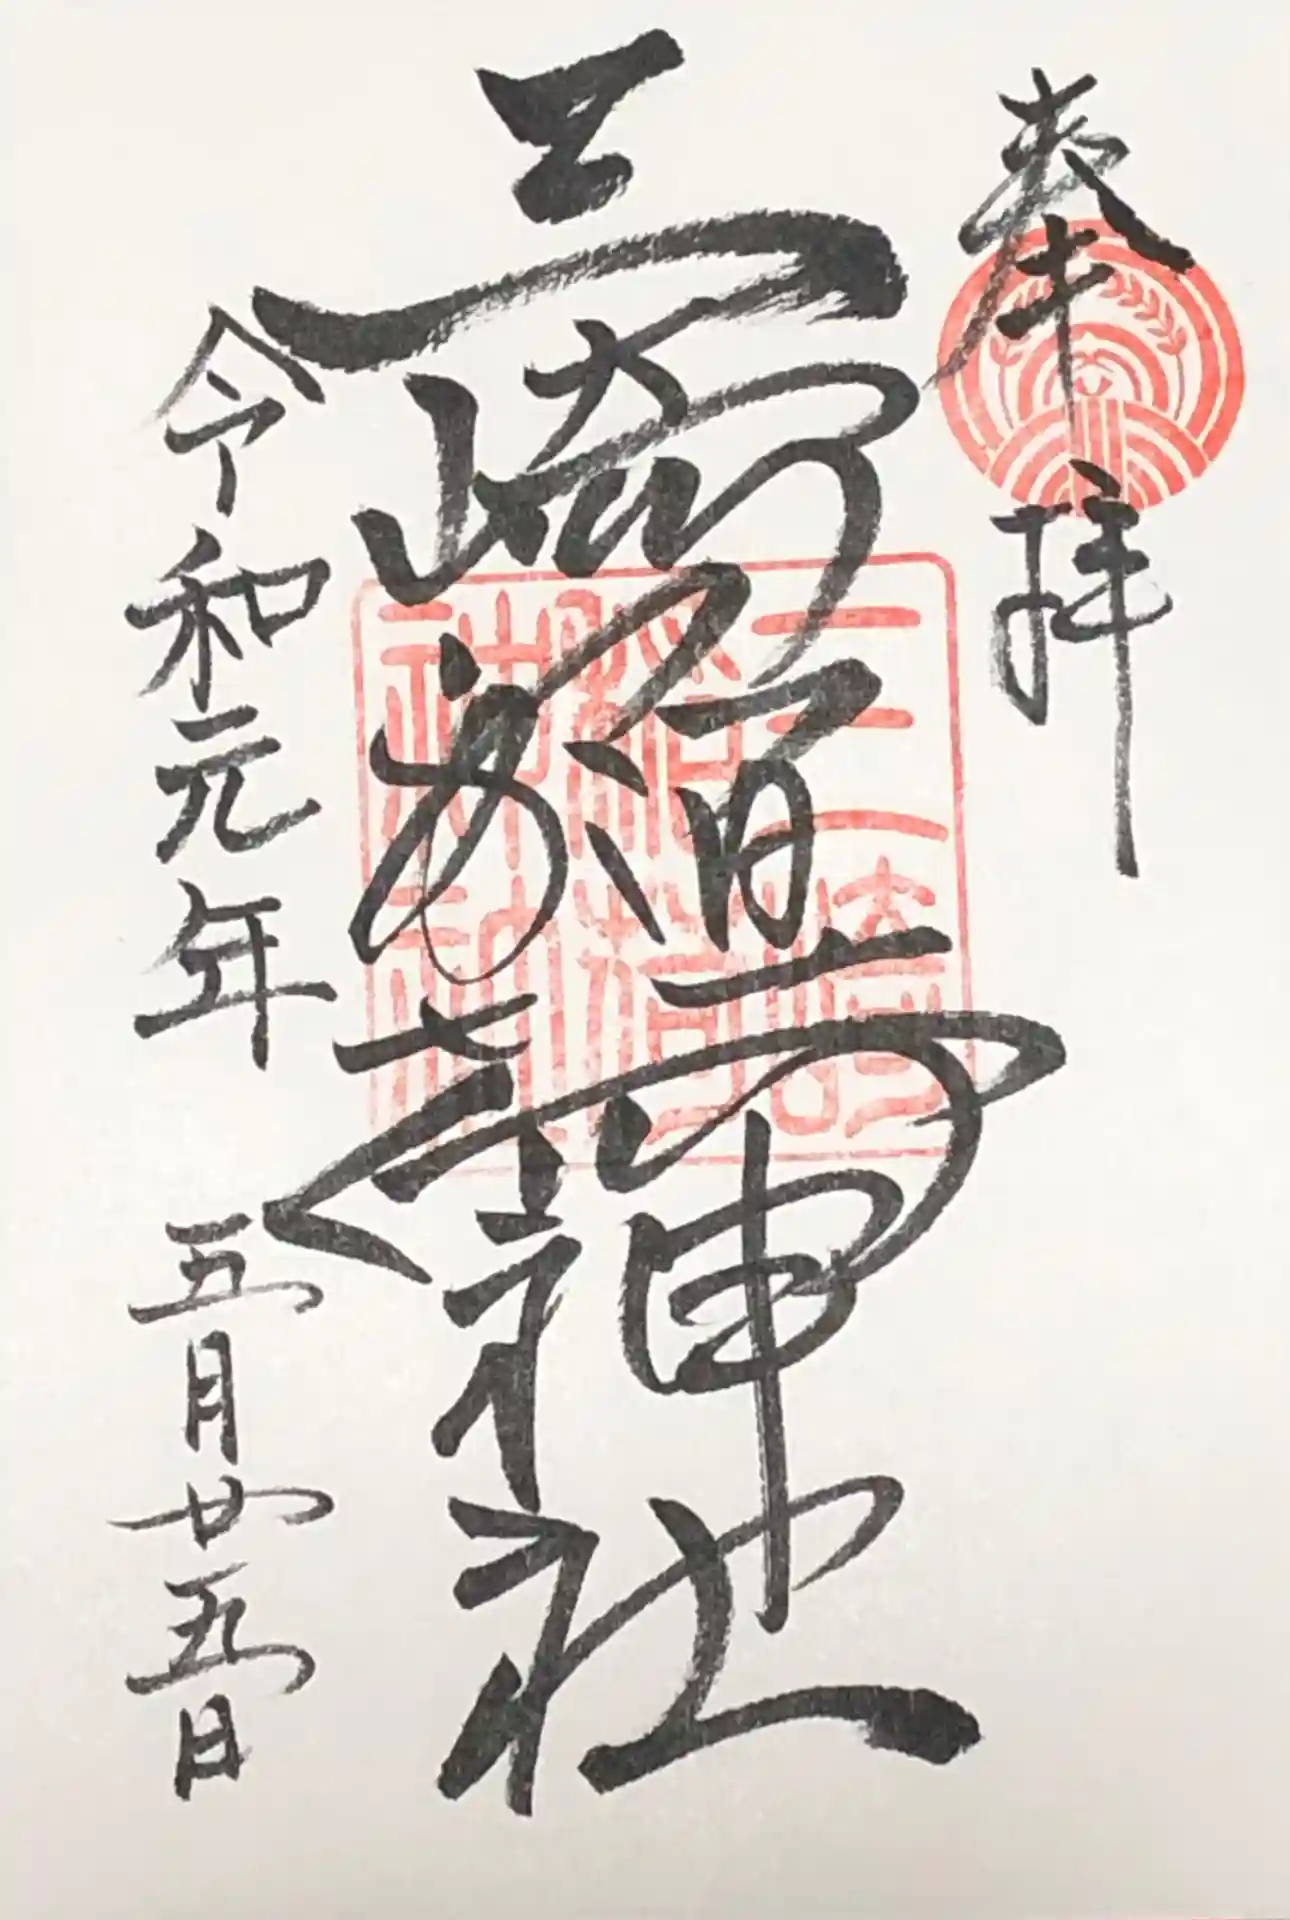 奉拝
三崎稲荷神社
令和元年 五月廿五日
三崎
稲荷
神社